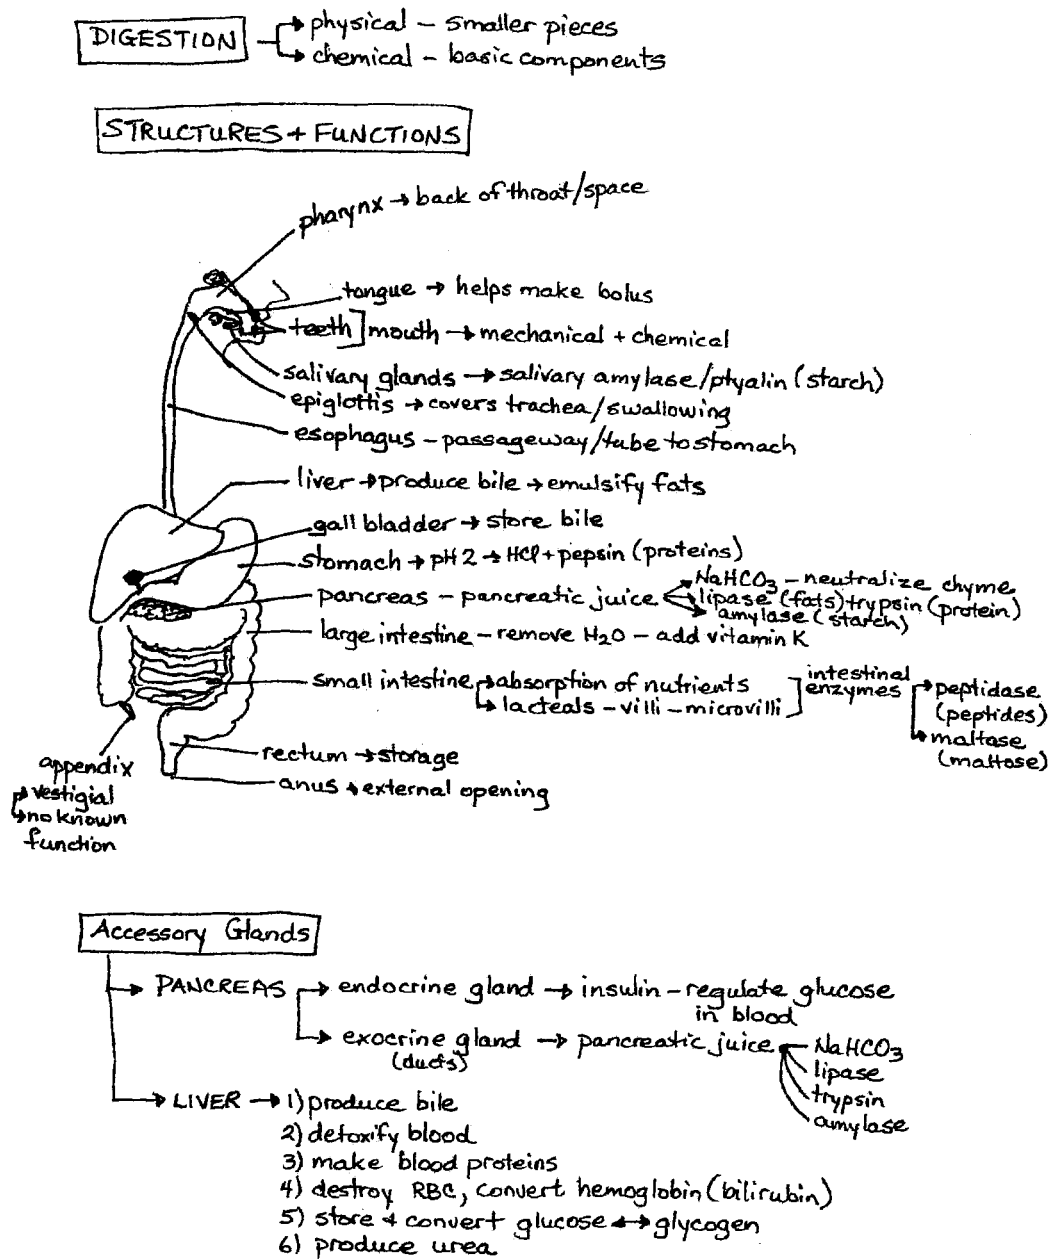 DIGESTION
physical - smaller pieces
chemical - basic components
STRUCTURES + FUNCTIONS
pharynx → back of throat/space
tongue → helps make bolus
teeth] mouth → mechanical + chemical
salivary glands → salivary amylase/ptyalin (starch)
epiglottis → covers trachea/swallowing
esophagus - passageway/tube to stomach
liver → produce bile → emulsify fats
gall bladder → store bile
stomach → pH 2 → HCl + pepsin (proteins)
pancreas - pancreatic juice
NaHCO3 - neutralize chyme
lipase (fats) trypsin (protein)
amylase (starch)
large intestine - remove H2O - add vitamin K
small intestine → absorption of nutrients
→ lacteals - villi - microvilli
intestinal
enzymes
→ peptidase
(peptides)
→ maltase
(maltose)
rectum → storage
anus → external opening
appendix
→ vestigial
→ no known
function
Accessory Glands
→ PANCREAS → endocrine gland → insulin - regulate glucose
in blood
→ exocrine gland → pancreatic juice
(ducts)
NaHCO3
lipase
trypsin
amylase
→ LIVER → 1) produce bile
2) detoxify blood
3) make blood proteins
4) destroy RBC, convert hemoglobin (bilirubin)
5) store + convert glucose ↔ glycogen
6) produce urea